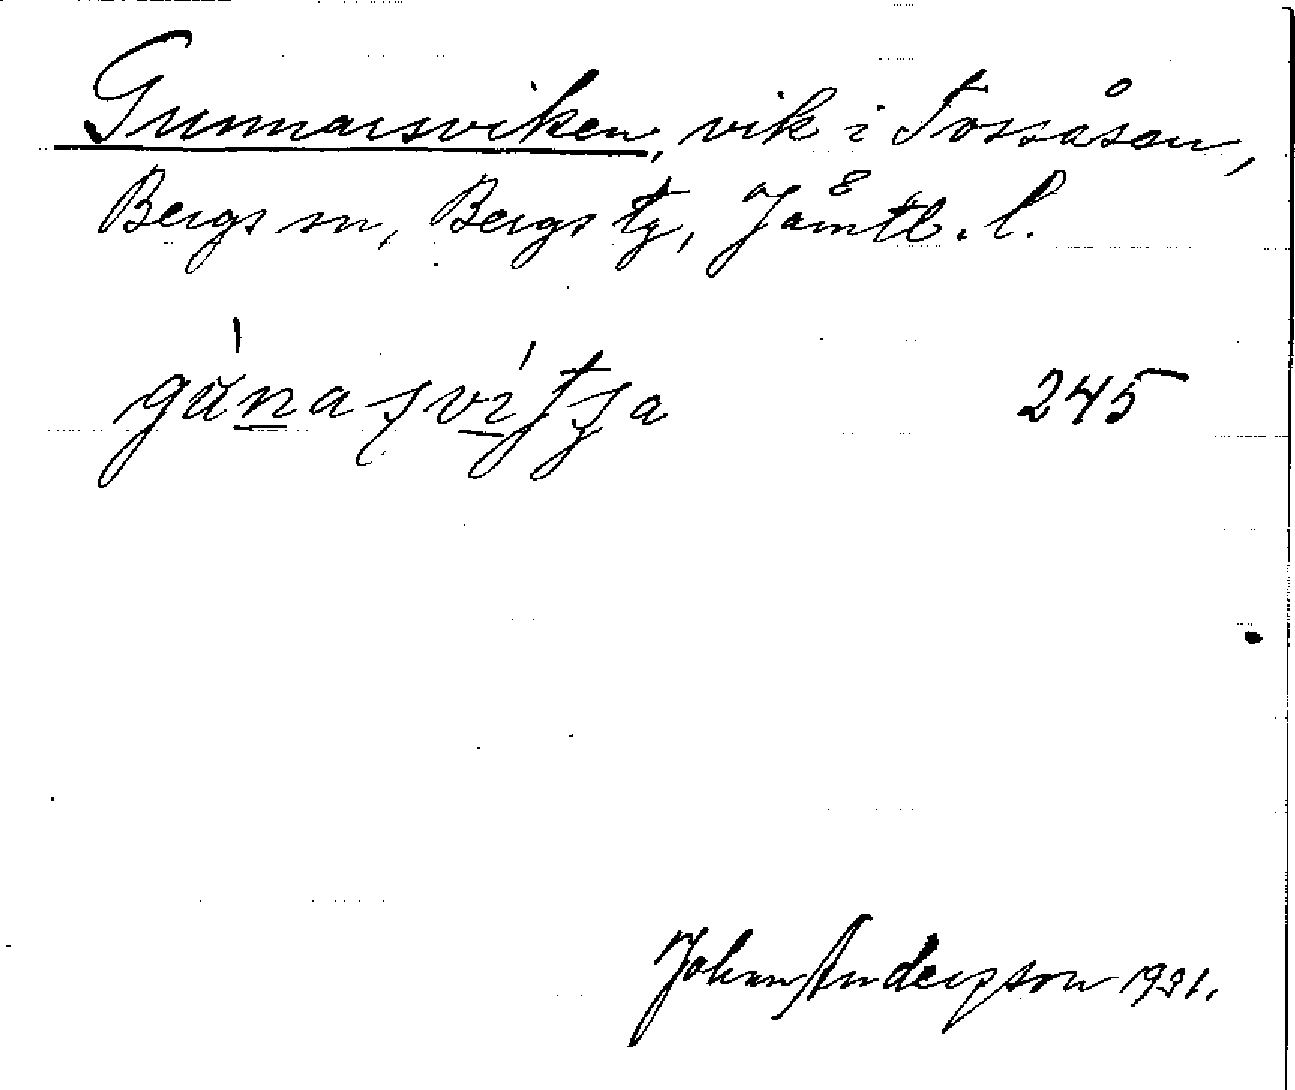 Gunnarsviken, vik i Tossåsån,
Bergs sn, Bergs tg, Jämtl. l.
245
Johan Anderson 1931.